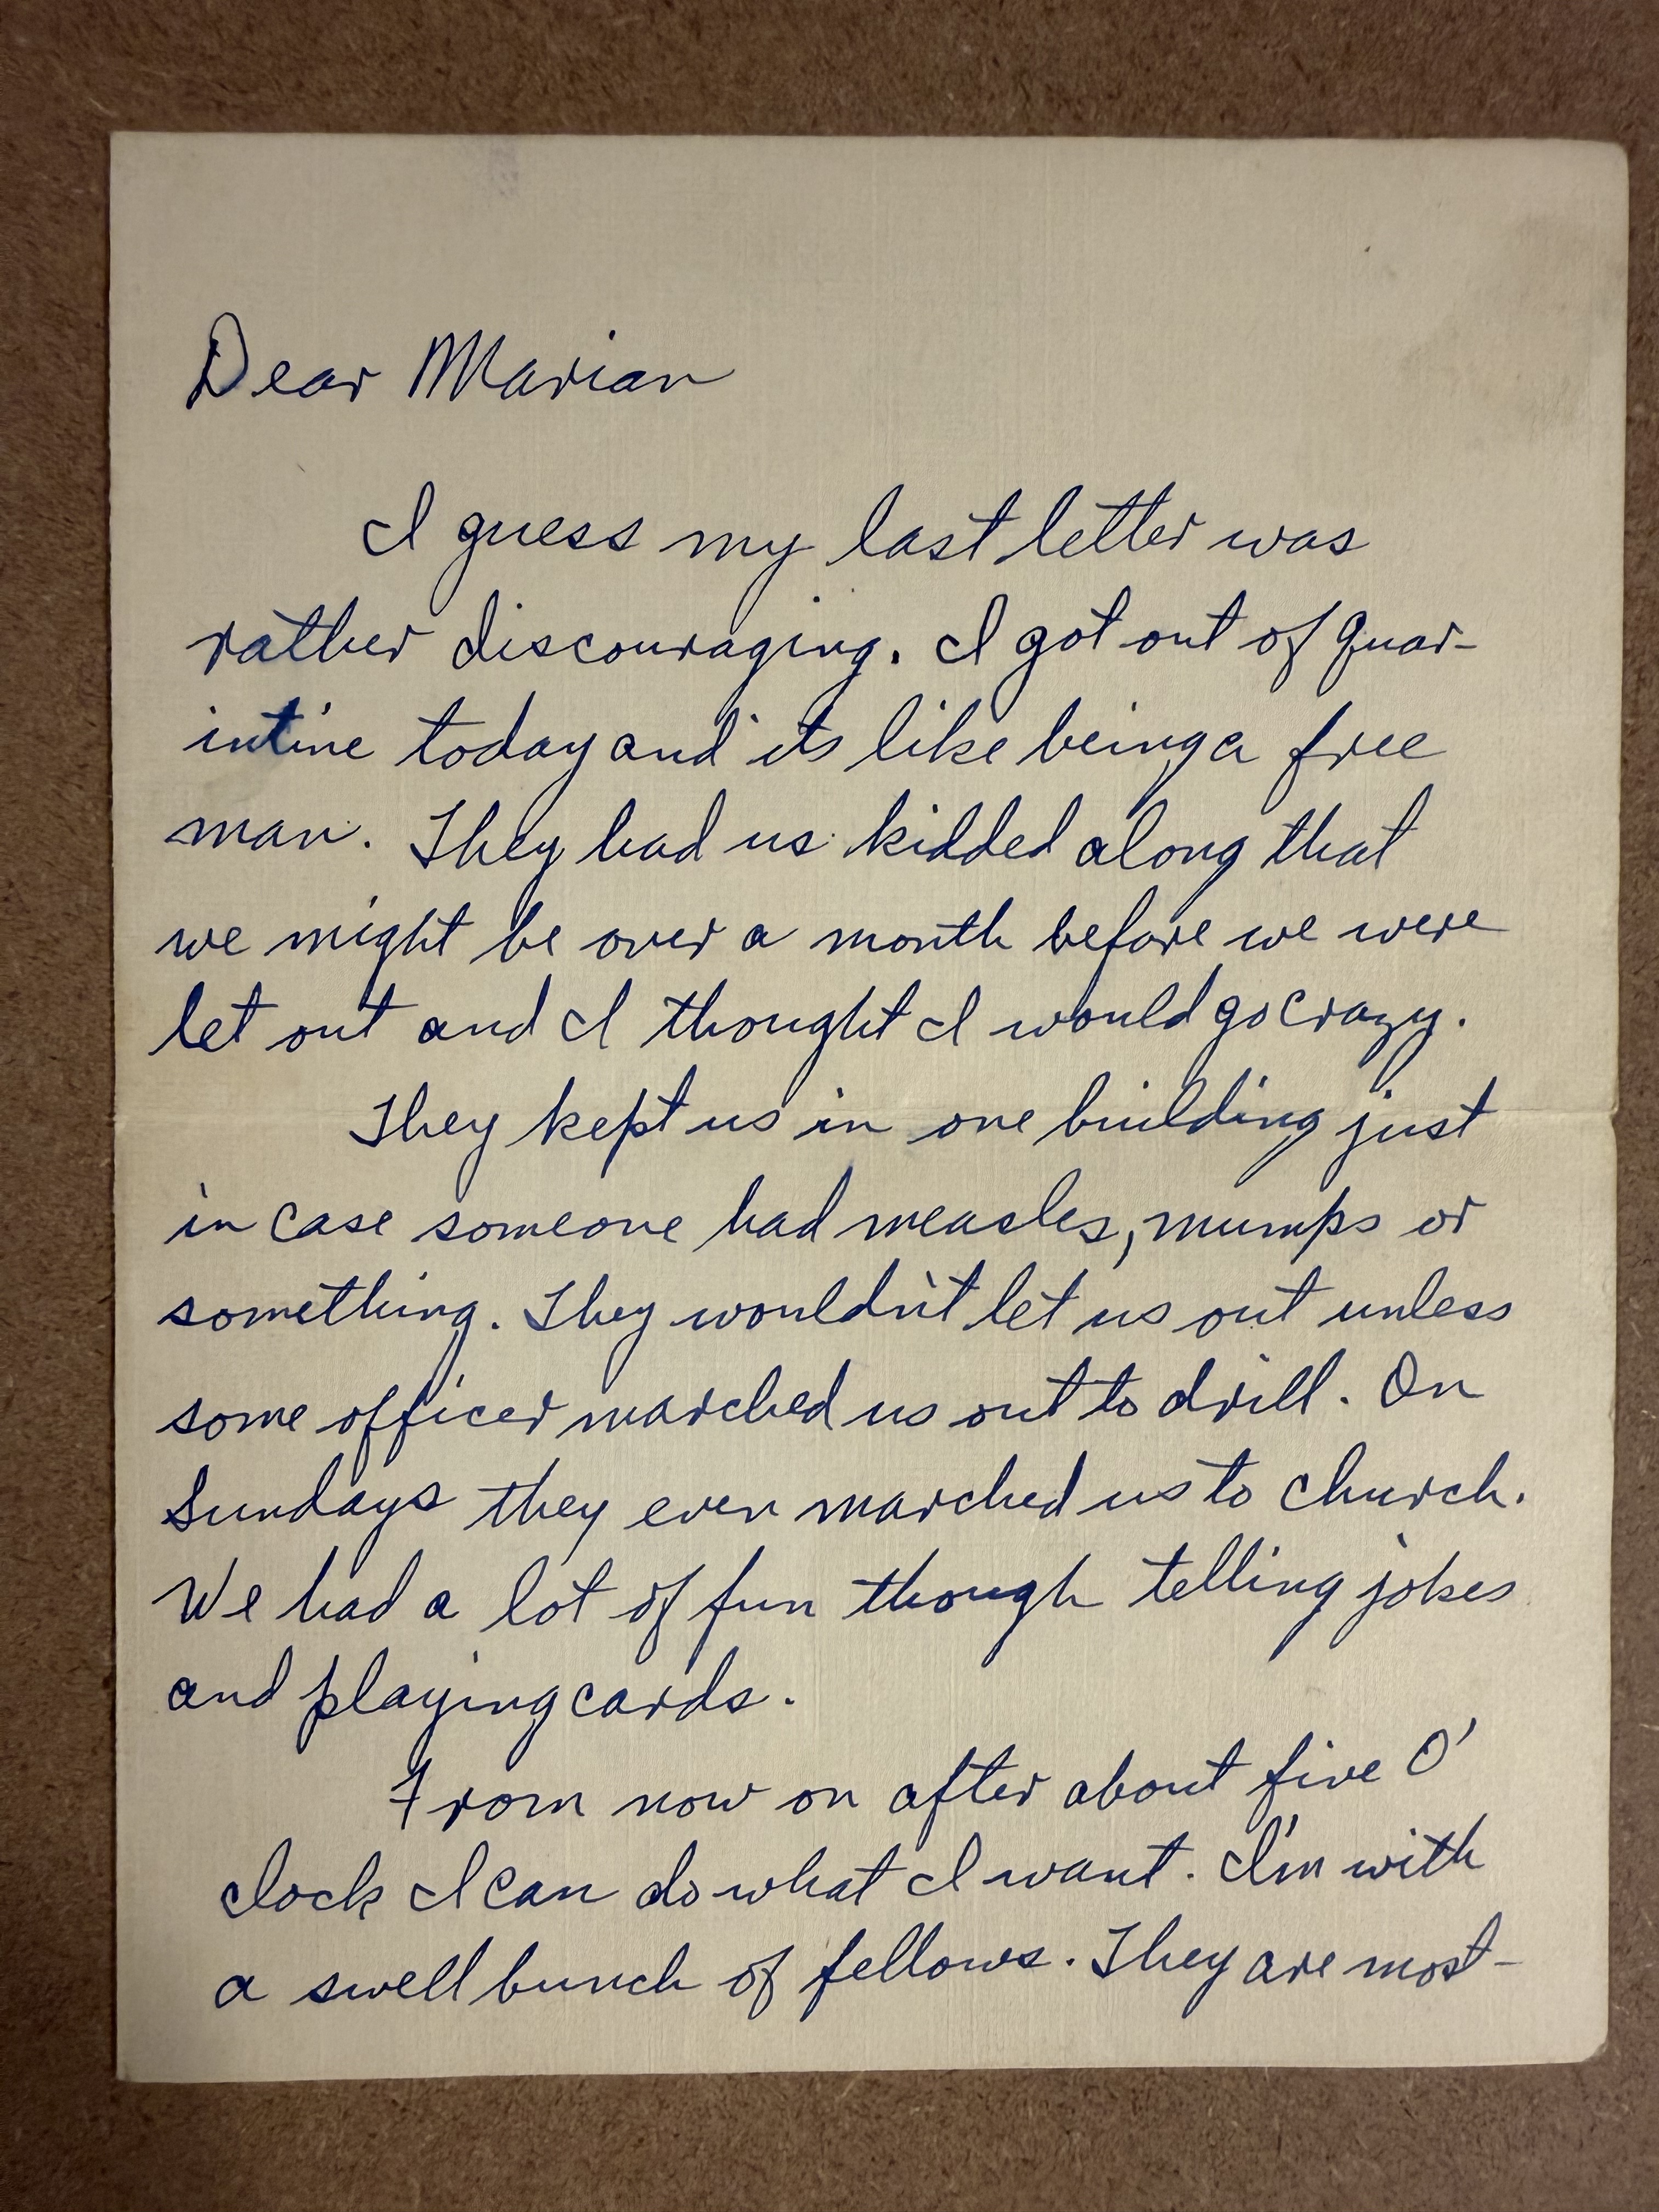 Dear Marian
I guess my last letter was
rather discouraging. I got out of quar-
intine today and its like being a free
man. They had us kidded along that
we might be over a month before we were
let out and I thought I would go crazy.
They kept us in one building just
in case someone had measles, mumps or
something. They wouldn't let us out unless
some officer marched us out to drill. On
Sundays they even marched us to church.
We had a lot of fun though telling jokes
and playing cards.
From now on after about five O'
clock I can do what I want. I'm with
a swell bunch of fellows. They are most-